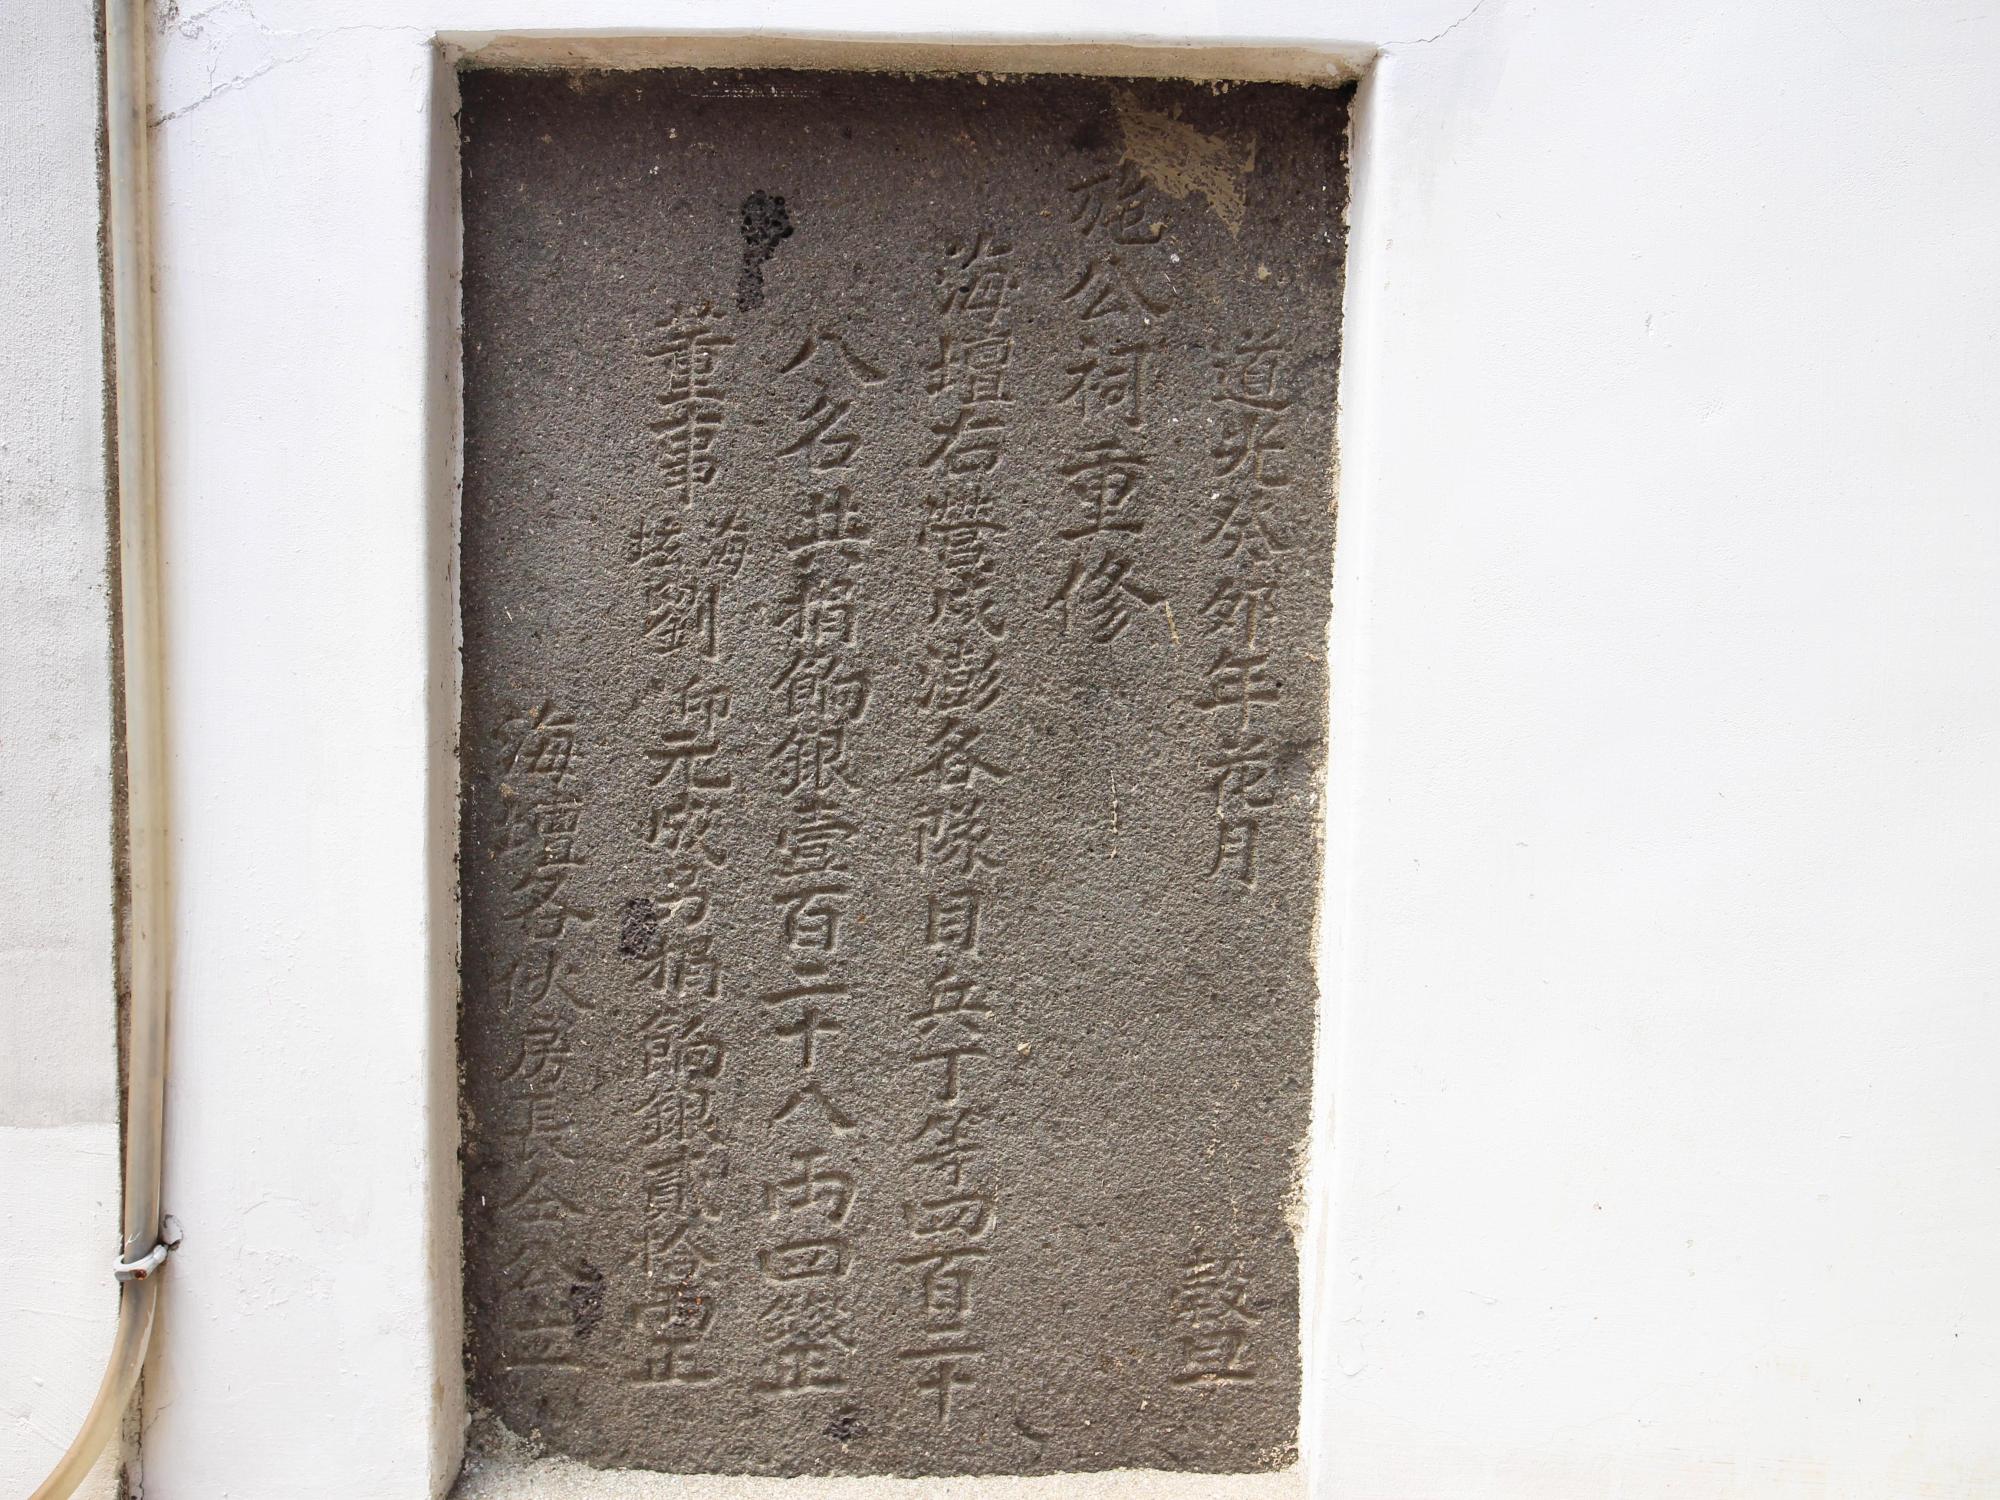 道光癸卯年花月 穀旦
施公祠重修
海壇右營戍澎各隊目兵丁等四百二十
八名共捐餉銀壹百二十八兩四錢正
董事海壇劉 印元成另捐餉銀貳拾両正
海壇各伙房長仝公立